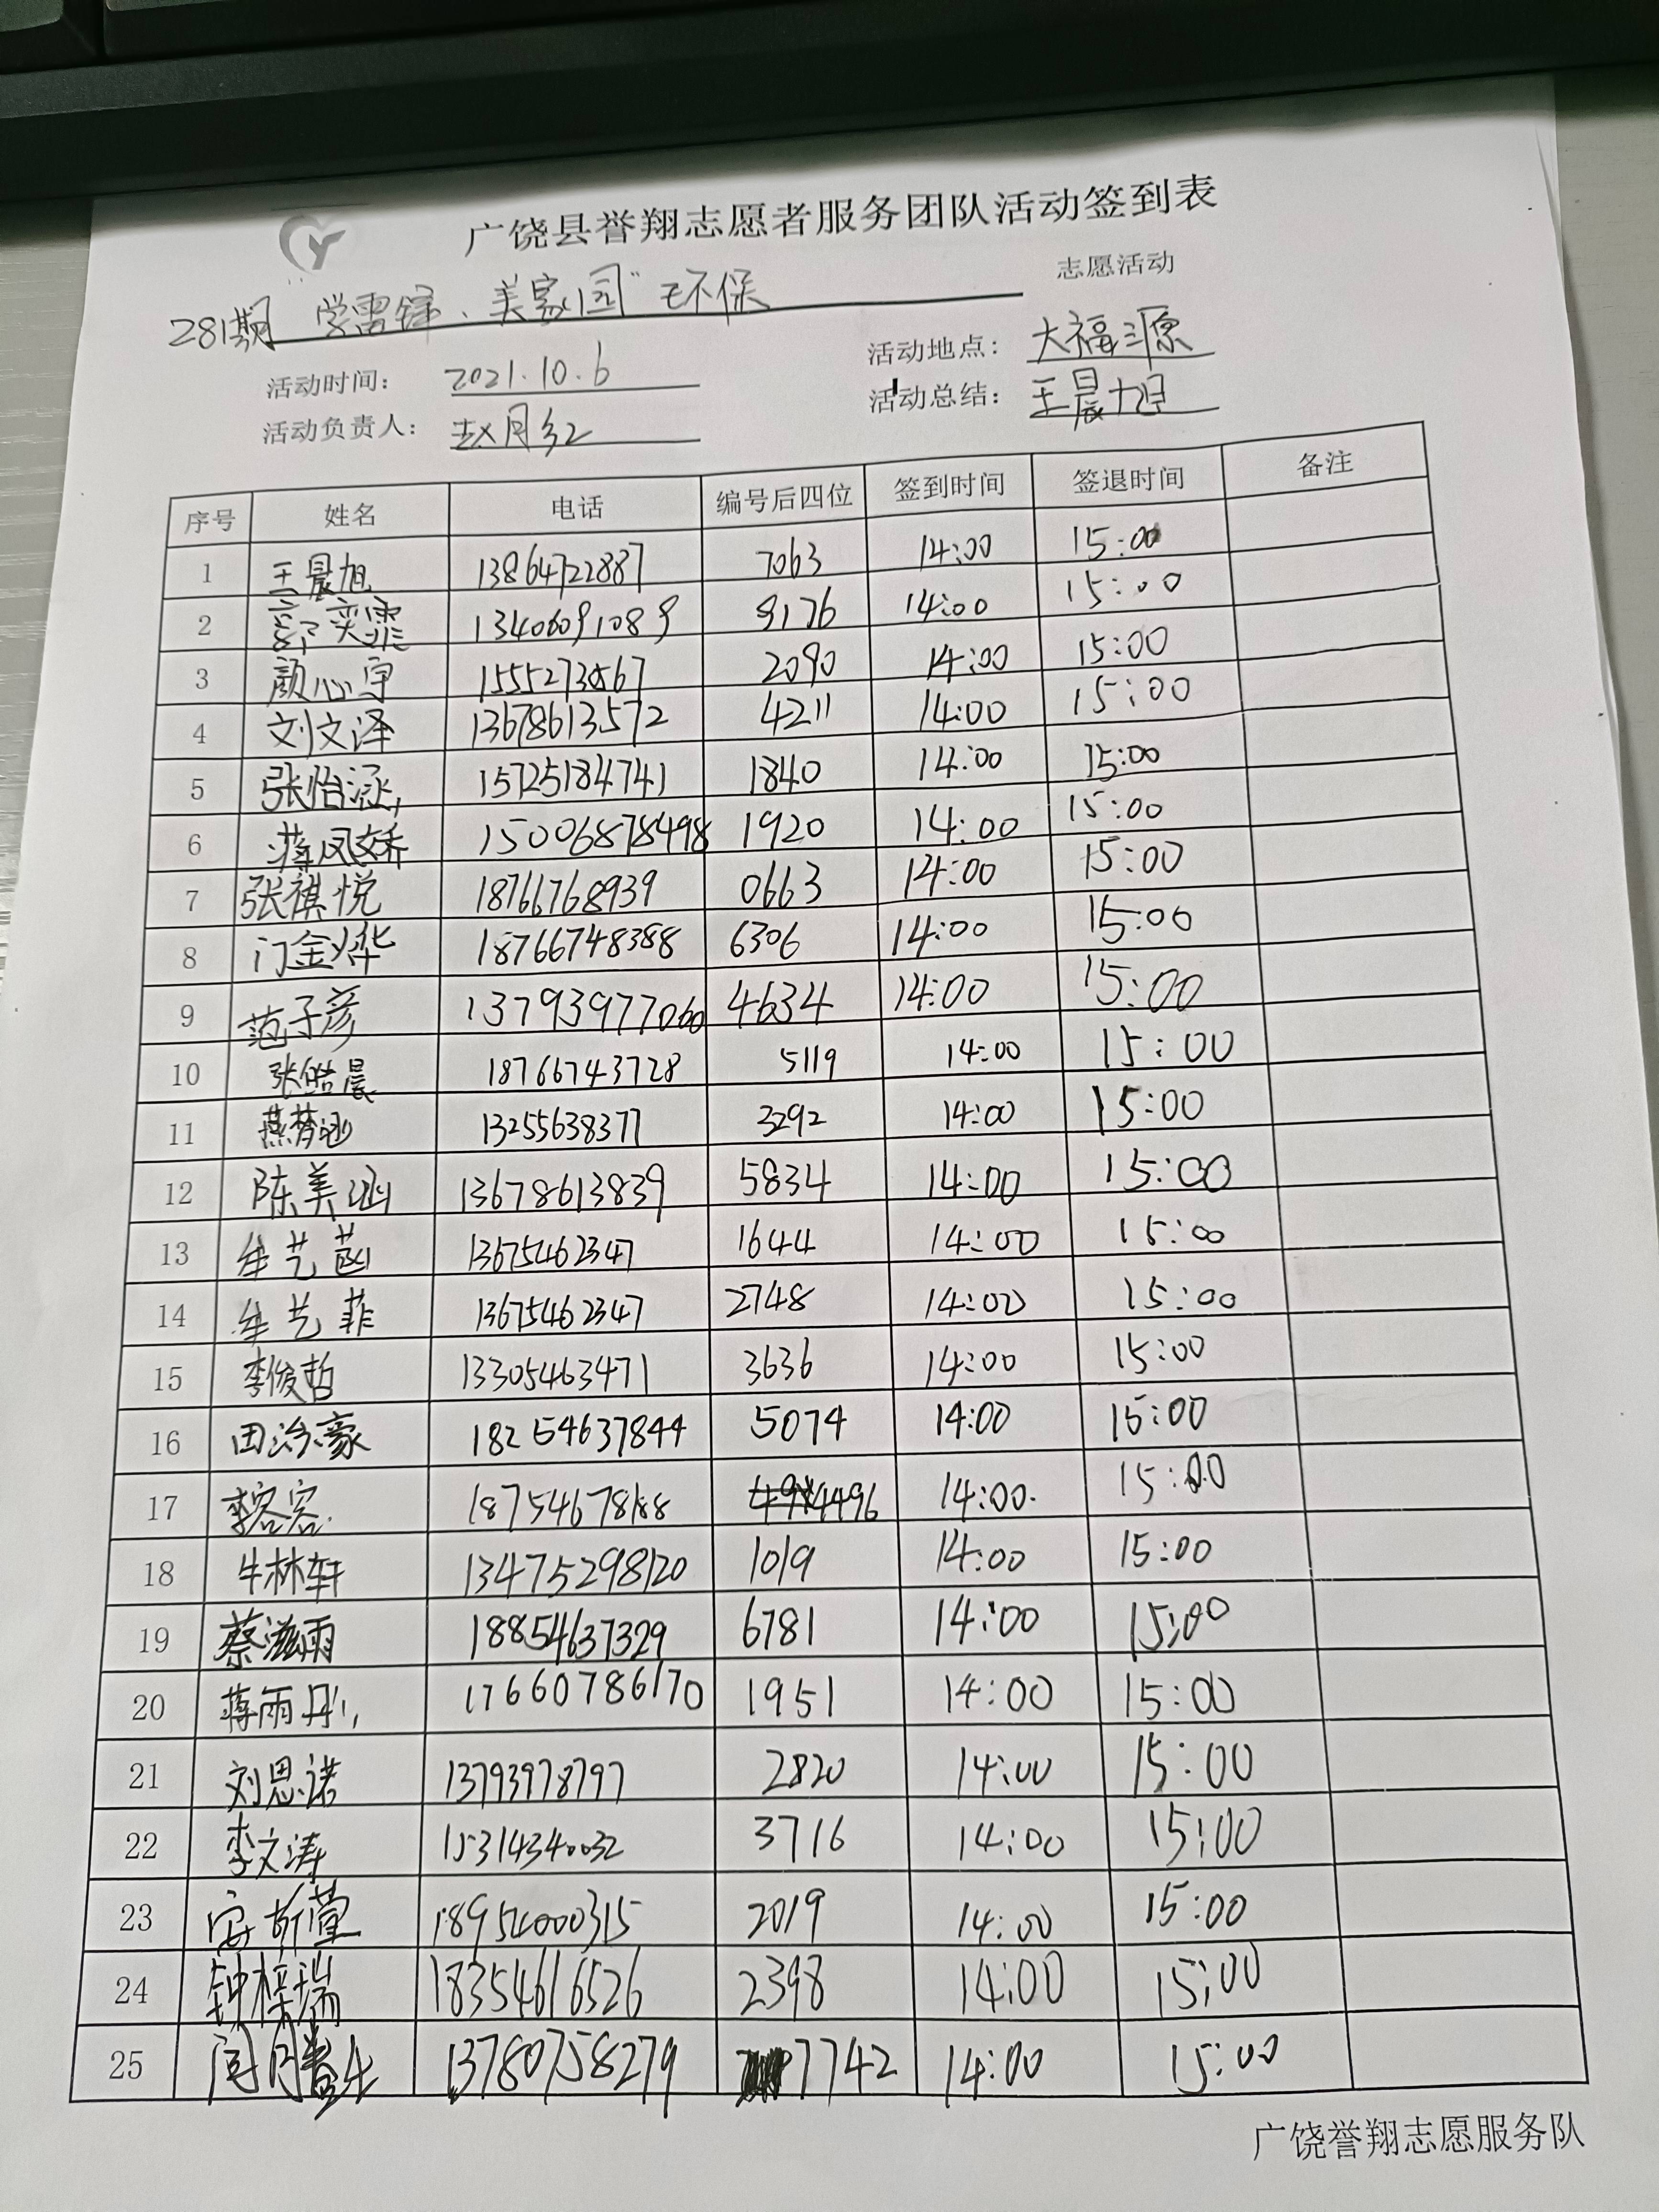 广饶县誉翔志愿者服务团队活动签到表
281期 "学雷锋、美家园"环保 志愿活动
活动时间: 2021.10.6 活动地点: 大福源
活动负责人: 赵月红 活动总结: 王晨旭
序号 姓名 电话 编号后四位 签到时间 签退时间 备注
1 王晨旭 13864722887 7063 14:00 15:00
2 奕霏 13406091089 9176 14:00 15:00
3 颜心宇 15552730567 2090 14:00 15:00
4 刘文泽 13678613572 4211 14:00 15:00
5 张怡涵 15725184741 1840 14:00 15:00
6 蒋凤娇 15006878498 1920 14:00 15:00
7 张祺悦 18766768939 0663 14:00 15:00
8 门金烨 18766748388 6306 14:00 15:00
9 范子彦 13793977060 4634 14:00 15:00
10 张皓晨 18766743728 5119 14:00 15:00
11 燕梦涵 13255638377 3292 14:00 15:00
12 陈美涵 13678613839 5834 14:00 15:00
13 牟艺菡 13675462347 1644 14:00 15:00
14 牟艺菲 13675462347 2748 14:00 15:00
15 李俊哲 13305463471 3636 14:00 15:00
16 田治豪 18254637844 5074 14:00 15:00
17 李容容 18754678188 4496 14:00 15:00
18 牛林轩 13475298120 1019 14:00 15:00
19 蔡滋雨 18854637329 6781 14:00 15:00
20 蒋雨彤 17660786170 1951 14:00 15:00
21 刘思诺 13793978797 2820 14:00 15:00
22 李文涛 15314340032 3716 14:00 15:00
23 安昕萱 18954000315 2019 14:00 15:00
24 钟梓瑞 18354616526 2398 14:00 15:00
25 13780758279 7742 14:00 15:00
广饶誉翔志愿服务队